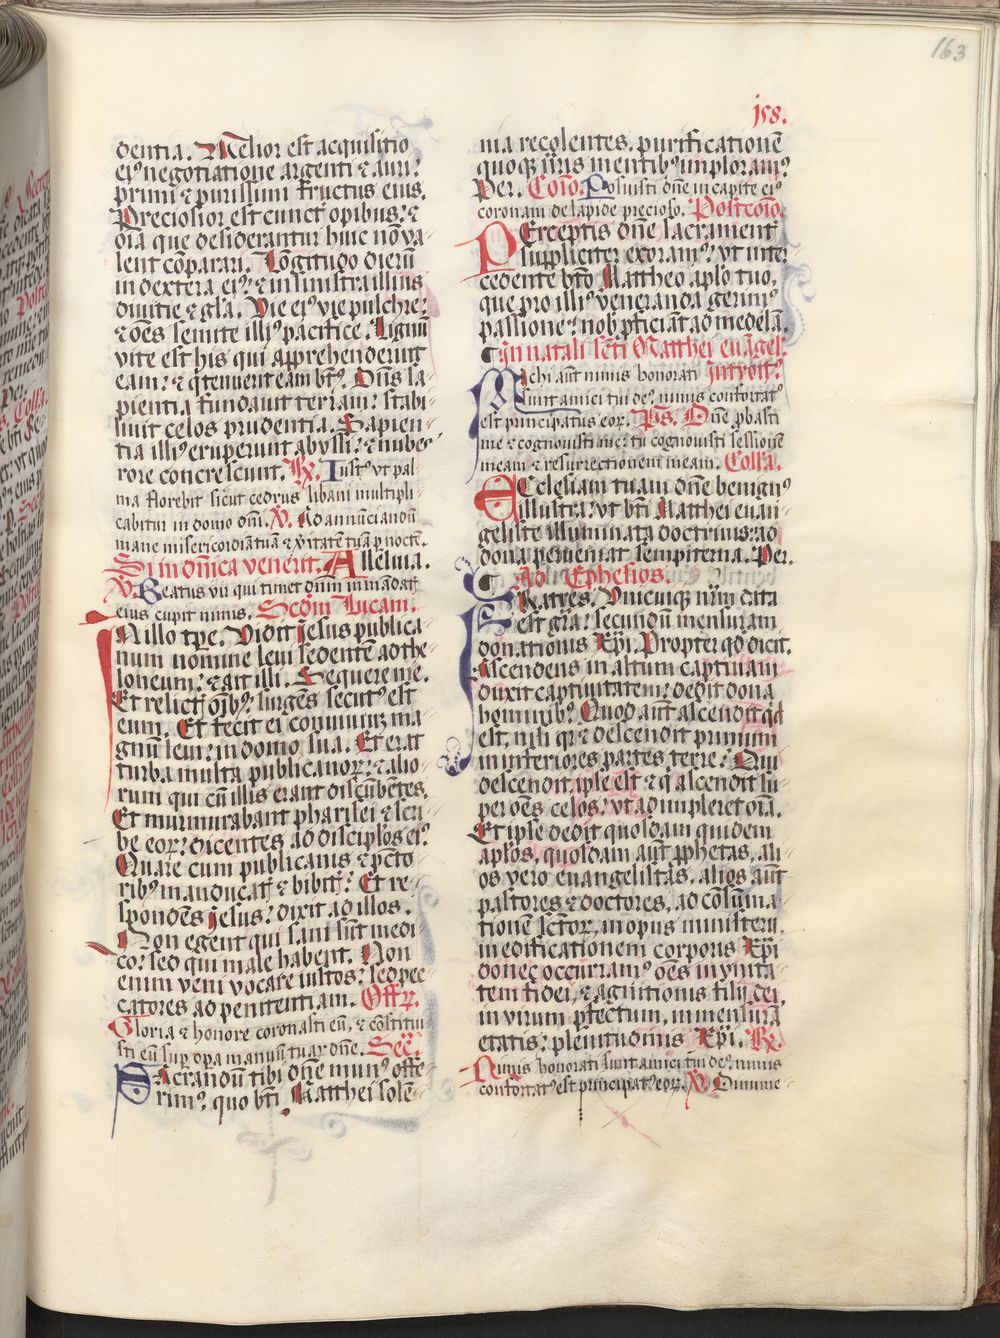 163
js8.
dentia. Melior est acquisitio
eiꝰ negotiatione argenti ⁊ auri.
primi ⁊ purissimi fructus eius.
Preciosior est cunctꝭ opibus: ⁊
oīa que desiderantur huic nō va
lent cōparari. Lōgitudo dierū
in dextera eiꝰ: ⁊ in sinistra illius
diuitie ⁊ gl̄a. Vie eiꝰ vie pulchre:
⁊ oēs semite illiꝰ pacifice. Lignū
vite est his qui apprehenderint
eam: ⁊ q̄ tenuerit eam btꝰ. Dn̄s sa
pientia fundauit terram: stabi
liuit celos prudentia. Sapien
tia illiꝰ eruperunt abyssi: ⁊ nubes
rore concrescunt. R̄. Iustꝰ vt pal
ma florebit sicut cedrus libani multipli
cabitur in domo dn̄i. V̄. Ad annūciandū
mane misericordiā tuā ⁊ v̄itatē tuā ꝑ noctē.
Si in dn̄ica venerit. Alleluia.
V̄. Beatus vir qui timet dn̄m in mādatꝭ
eius cupit nimis. Scd̄m Lucam.
IN illo tp̄e. Vidit iesus publica
num nomine leui sedentē ad the
loneum: ⁊ ait illi. Sequere me.
Et relictꝭ oībꝰ: surgēs secutꝰ est
eum. Et fecit ei conuiuiū ma
gnū leui: in domo sua. Et erat
turba multa publicanoꝝ: ⁊ alio
rum qui cū illis erant discūbētes.
Et murmurabant pharisei ⁊ scri
be eoꝝ: dicentes ad discipl̄os eiꝰ.
Quare cum publicanis ⁊ pc̄to
ribꝰ manducatꝭ ⁊ bibitꝭ: Et re
spondēs iesus: dixit ad illos.
Non egent qui sani sūt medi
co: sed qui male habent. Non
enim veni vocare iustos: sed pec
catores ad penitentiam. Offꝝ.
Gloria ⁊ honore coronasti eū, ⁊ cōstitui
sti eū suꝑ oꝑa manuū tuaꝝ dn̄e. Secꝭ.
SAcrandū tibi dn̄e munꝰ offe
rimꝰ, quo bt̄i Matthei solē
nia recolentes, purificationē
quoqꝫ nr̄is mentibꝰ imploramꝰ.
Per. Com̄o. Posuisti dn̄e in capite eiꝰ
coronam de lapide precioso. Postcom̄o.
PErceptis dn̄e sacramentꝭ
suppliciter exoramꝰ: vt inter
cedente bt̄o Mattheo apl̄o tuo,
que pro illiꝰ veneranda gerimꝰ
passione: nobꝭ ꝓficiāt ad medelā.
In natali scti Matthei euāgel.
Introitꝰ.
Michi aūt nimis honorati
sunt amici tui deꝰ, nimis confortatꝰ
est principatus eoꝝ. Ps̄. Dn̄e ꝓbasti
me ⁊ cognouisti me: tu cognouisti sessionē
meam ⁊ resurrectionem meam. Coll̄a.
ECclesiam tuam dn̄e benignꝰ
illustra: vt bt̄i Matthei euan
geliste illuminata doctrinis: ad
dona perueniat sempiterna. Per.
Ad Ephesios.
FRatres. Vnicuiqꝫ nr̄m data
est gr̄a: secundū mensuram
donationis xp̄i. Propter qd̄ dicit.
Ascendens in altum captiuam
duxit captiuitatem: dedit dona
hominibꝰ. Quod aūt ascendit qd̄
est, nisi qꝛ ⁊ descendit primum
in inferiores partes terre: Qui
descendit, ipse est ⁊ q̄ ascendit su
per oēs celos: vt adimpleret oīa.
Et ipse dedit quosdam quidem
apl̄os, quosdam aūt ꝓphetas, ali
os vero euangelistas, alios aūt
pastores ⁊ doctores, ad cōsūma
tionē sctoꝝ, in opus ministerii,
in edificationem corporis xp̄i
donec occurramꝰ oēs in vnita
tem fidei, ⁊ agnitionis filij dei,
in virum ꝑfectum, in mensurā
etatis: plenitudinis xp̄i. R̄.
Nimis honorati sunt amici tui deꝰ, nimis
confortatꝰ est principatꝰ eoꝝ. V̄. Dinume